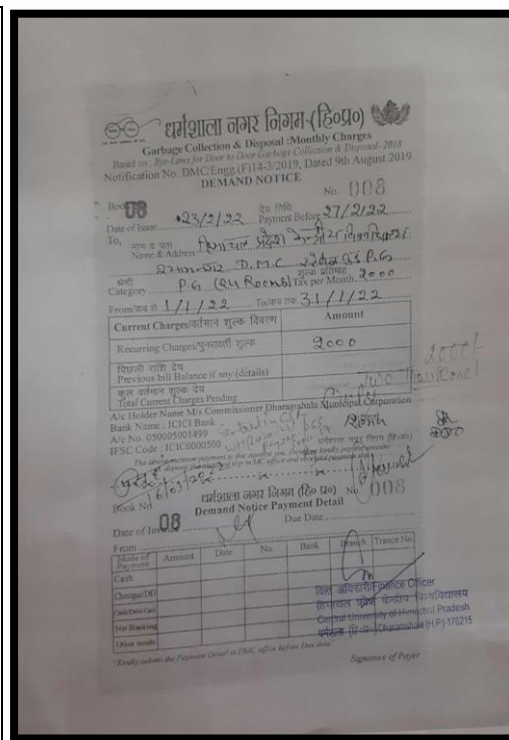 धर्मशाला नगर निगम-(हि०प्र०)
Garbage Collection & Disposal :Monthly Charges
Based on : Bye-Laws for Door to Door Garbage Collection & Disposal- 2018
Notification No. DMC/Engg.(F)14-3/2019, Dated 9th August 2019
DEMAND NOTICE
Book 08 No. 008
देय तिथि
Date of Issue 23/2/22 Payment Before 27/2/22
To, नाम व पता
Name & Address हिमाचल प्रदेश केन्द्रीय विश्वविद्यालय
D.M.C P.G
श्रेणी शुल्क प्रतिमाह
Category P.G (24 Rooms) Tax per Month 2000
From/कब से 1/1/22 To/कब तक 31/1/22
Current Charges/वर्तमान शुल्क विवरण Amount
Recurring Charges/पुनरावर्ती शुल्क 2000
पिछली राशि देय
Previous bill Balance if any (details)
कुल वर्तमान शुल्क देय
Total Current Charges Pending
2000/
Two Thousand
A/c Holder Name M/s Commissioner Dharamshala Municipal Corporation
Bank Name : ICICI Bank
A/c No. 050005001499
IFSC Code : ICIC0000500
धर्मशाला नगर निगम (हि०प्र०)
The above mention payment is due against you, therefore kindly pay the amount
deposit the slip in MC office and
16/03/2022
धर्मशाला नगर निगम (हि० प्र०) No. 008
Book No. 08 Demand Notice Payment Detail
Date of Due Date
From
Mode of Payment Amount Date No. Bank Branch Trance No.
Cash
Cheque/DD
Credit/Debit Card
Net Banking
Other mode
वित्त अधिकारी/Finance Officer
हिमाचल प्रदेश केन्द्रीय विश्वविद्यालय
Central University of Himachal Pradesh
धर्मशाला (हि०प्र०)/Dharamshala (H.P.)-176215
*Kindly submit the Payment Detail in DMC office before Due date*
Signature of Payer